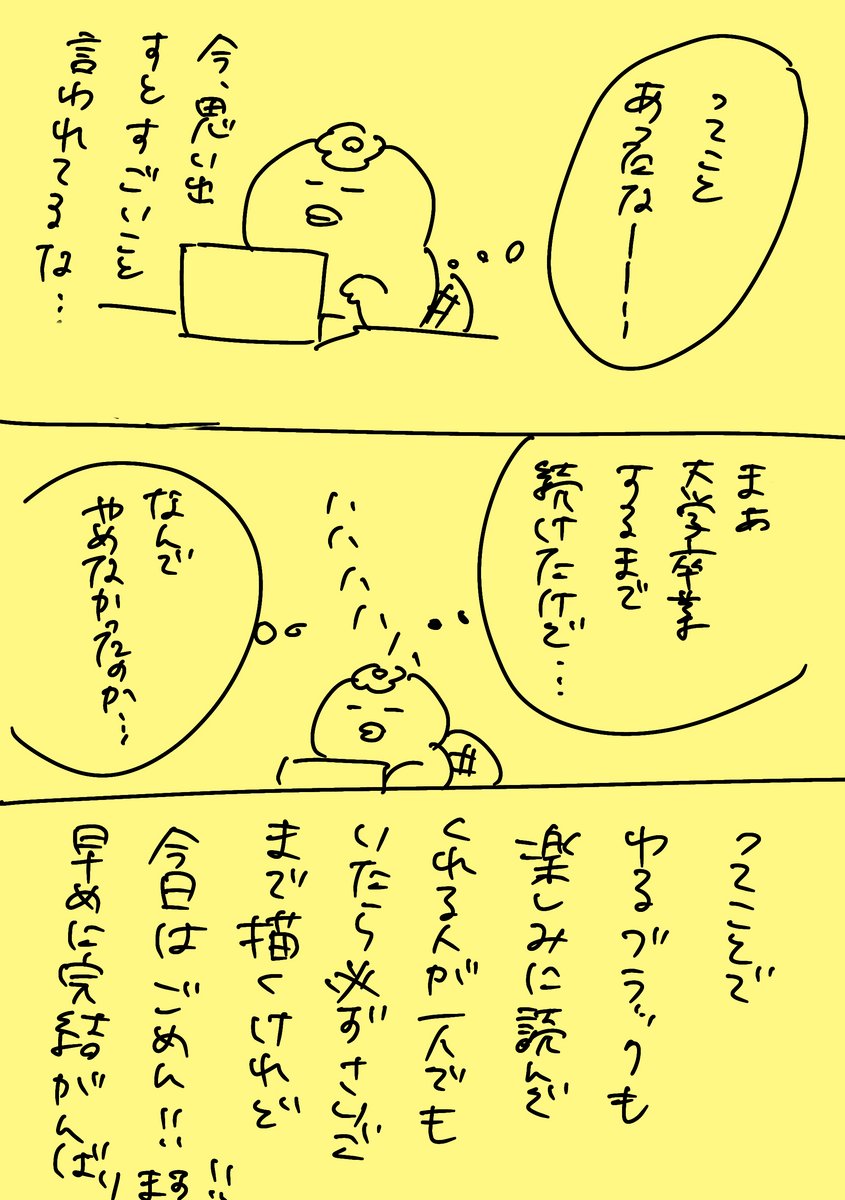 ってこと
あったなーーーー
今、思い出
すとすごいこと
言われてるな…
まあ
大学卒業
するまで
続けたけど…
ハハハハ
なんで
やめなかったのか…
ってことで
わるブラックも
楽しみに読んで
くれる人が一人でも
いたら必ずさいご
まで描くけれど
今日はごめん!!
早めに完結がんばり
ます!!